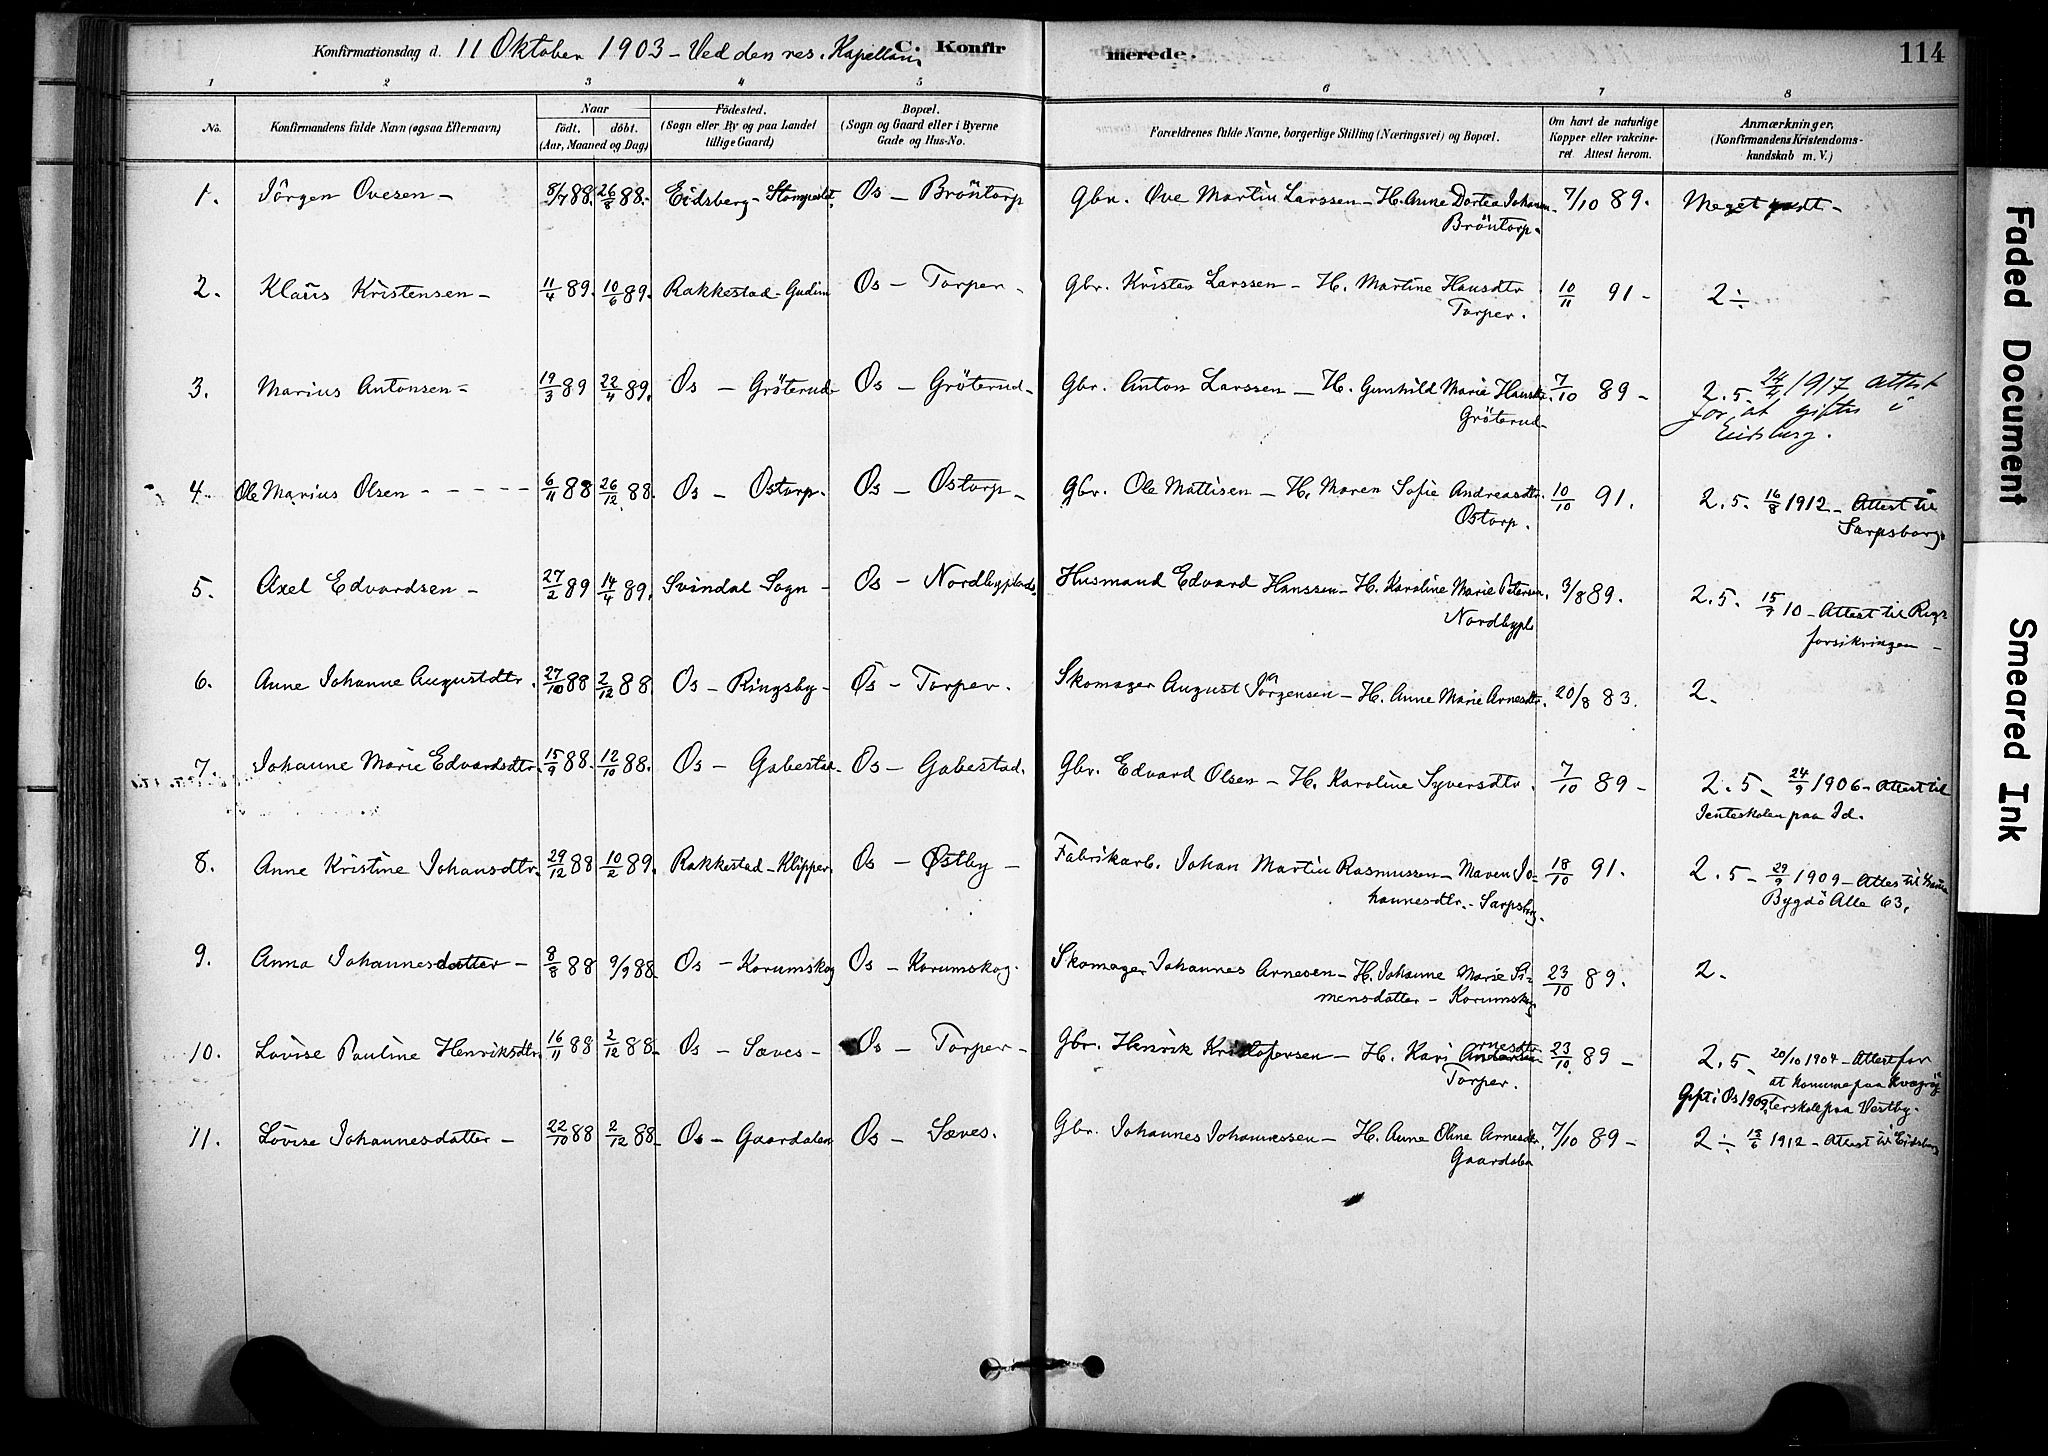 Konfirmationsdag d. 11 Oktober 1903 - Ved den res. Kapellan C. Konfirmerede. 114
1 2 3 4 5 6 7 8
No. Konfirmandens fulde Navn (ogsaa Efternavn) Naar født. døbt. (Aar, Maaned og Dag) Födested. (Sogn eller By og paa Landet tillige Gaard) Bopæl. (Sogn og Gaard eller i Byerne Gade og Hus-No. Forældrenes fulde Navne, borgerlige Stilling (Næringsvei) og Bopæl. Om havt de naturlige Kopper eller vakcineret Attest herom. Anmærkninger. (Konfirmandens Kristendomskundskab m. V.)
1. Jörgen Ovesen - 8/7 88. 26/8 88. Eidsberg - Os - Bröntorp Gbr. Ove Martin Larssen - H. Anne Dortea 7/10 89. Meget godt -
Bröntorp -
2. Klaus Kristensen - 11/4 89. 10/6 89. Rakkestad - Gudim Os - Torper - Gbr. Kristen Larssen - H. Martine Hansdtr 10/11 91 - 2 ÷
Torper.
3. Marius Antonsen - 19/3 89 22/4 89. Os - Gröterud - Os - Gröterud - Gbr. Anton Larssen - H. Gunhild Marie Hansdtr. 7/10 89 - 2.5 - 24/4 1917 attest
Gröterud - for at giftes i
Eidsberg.
4. Ole Marius Olsen - - - - - 6/11 88 26/12 88. Os - Ostorp. Os - Ostorp - Gbr. Ole Mattisen - H. Maren Sofie Andreasdtr. 10/10 91. 2.5. 16/8 1912 - Attest til
Ostorp. Sarpsborg.
5. Axel Edvardsen - 27/2 89 14/4 89. Svindal Sogn - Os - Nordbyplads. Husmand Edvard Hanssen - H. Karoline Marie Petersen. 3/8 89. 2.5. 15/7 10 - Attest til Rigs
Nordbypl. forsikringen -
6. Anne Johanne Augustdtr. 27/10 88 2/12 88. Os - Ringsby - Os - Torper. Skomager August Jörgensen - H. Anne Marie Arnesdtr. 20/8 83. 2.
7. Johanne Marie Edvardsdtr. 15/9 88. 12/10 88. Os - Gabestad. Os - Gabestad. Gbr. Edvard Olsen - H. Karoline Syversdtr. 7/10 89 - 2.5 - 24/9 1906 - Attest til
Jenteskolen paa Id.
8. Anne Kristine Johansdtr. 29/12 88 10/2 89. Rakkestad - Klipper. Os - Østby - Fabrikarb. Johan Martin Rasmussen - Maren Jo- 18/10 91. 2.5 - 29/9 1909 - Attes til
hannesdtr. - Sarpsbg. Bygdö Alle 63,
9. Anna Johannesdatter - 8/8 88 9/9 88. Os - Korumskog Os - Korumskog. Skomager Johannes Arnesen - H. Johanne Marie Si- 23/10 89. 2.
mensdatter - Korumskog
10. Lovise Pauline Henriksdtr. 16/11 88 2/12 88. Os - Sæves - Os - Torper - Gbr. Henrik Kristofersen - H. Kari Arnesdtr. 23/10 89 - 2.5 - 20/10 1904 - Attest for
Torper. at komme paa Kvægrög
Gift i Os 1909. terskole paa Vestby.
11. Lovise Johannesdatter - 22/10 88 2/12 88. Os - Gaardalen Os - Sæves. Gbr. Johannes Johannessen - H. Anne Oline Arnesdtr. 7/10 89 - 2 ÷ 13/6 1912 - Attest til Eidsberg
Gaardalen
Faded Document
Smeared Ink